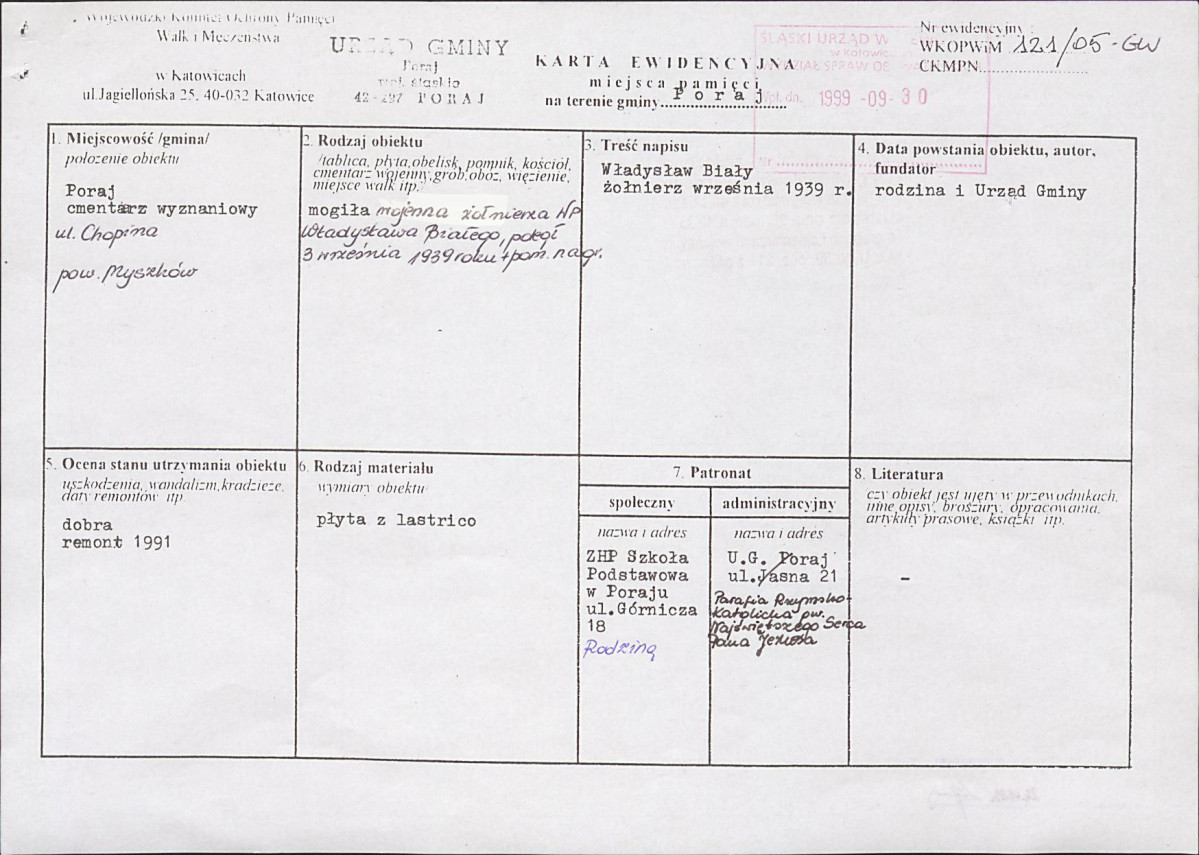 Wojewódzki Komitet Ochrony Pamięci
Walk i Męczeństwa
w Katowicach
ul.Jagiellońska 25, 40-032 Katowice
URZĄD GMINY
Poraj
woj. śląskie
42-297 PORAJ
KARTA EWIDENCYJNA
miejsca pamięci
na terenie gminy Poraj
ŚLĄSKI URZĄD W
w Katowic
WYDZIAŁ SPRAW OB
Wpł. dn. 1999 -09- 30
Nr
Nr ewidencyjny :
WKOPWiM 121/05-GW
CKMPN
1. Miejscowość /gmina/
położenie obiektu
Poraj
cmentarz wyznaniowy
ul. Chopina
pow. Myszków
2. Rodzaj obiektu
/tablica, płyta,obelisk, pomnik, kościół,
cmentarz wojenny,grób,obóz, więzienie,
miejsce walk itp.
mogiła wojenna żołnierza WP
Władysława Białego, poległ
3 września 1939 roku + pom. nagr.
3. Treść napisu
Władysław Biały
żołnierz września 1939 r.
4. Data powstania obiektu, autor,
fundator
rodzina i Urząd Gminy
5. Ocena stanu utrzymania obiektu
uszkodzenia, wandalizm,kradzieże,
daty remontów itp.
dobra
remont 1991
6. Rodzaj materiału
wymiary obiektu
płyta z lastrico
7. Patronat
społeczny
nazwa i adres
ZHP Szkoła
Podstawowa
w Poraju
ul.Górnicza
18
Rodziną
administracyjny
nazwa i adres
U.G. Poraj
ul.Jasna 21
Parafia Rzymsko-
Katolicka pw.
Najświętszego Serca
Pana Jezusa
8. Literatura
czy obiekt jest ujęty w przewodnikach,
inne opisy, broszury, opracowania,
artykuły prasowe, książki itp.
-